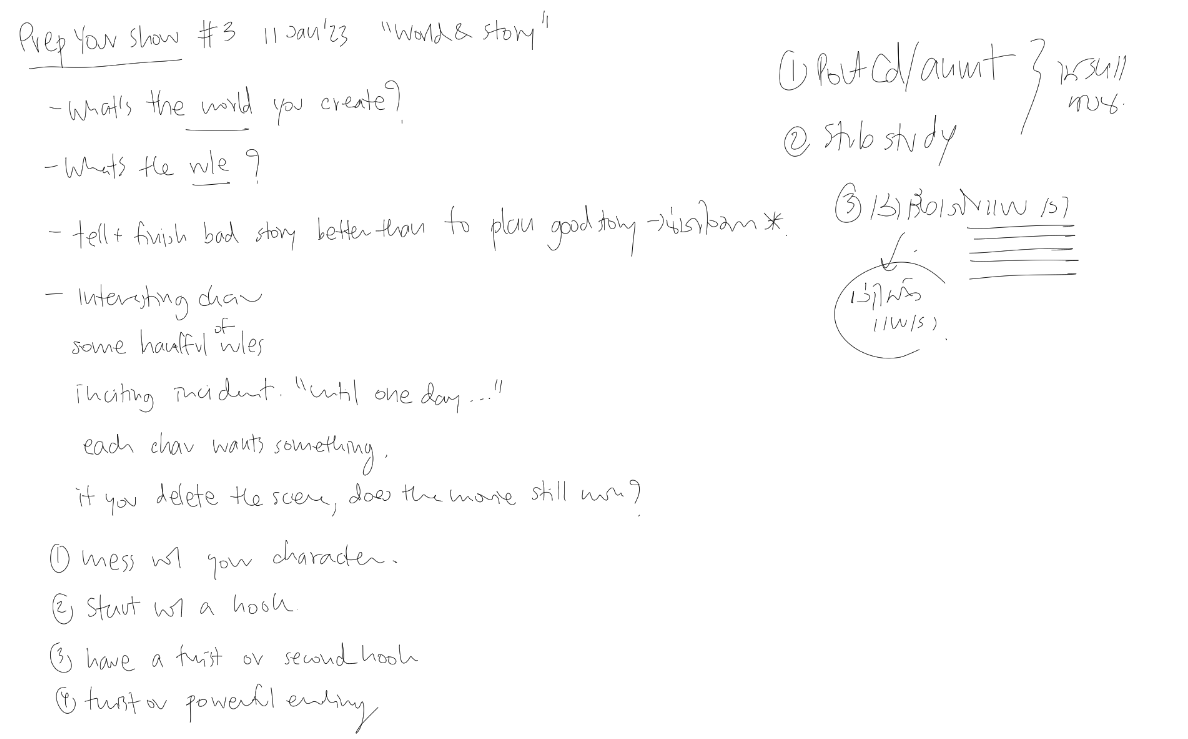 Prep Your show #3 11 Jan'23 "World & story"
- What's the world you create?
- Whats the rule ?
- tell + finish bad story better than to plan good story → *
- Interesting char
some handful of rules
inciting incident. "until one day..."
each char wants something.
if you delete the scene, does the movie still run?
① mess w/ your character.
② Start w/ a hook
③ have a twist or second hook
④ twist or powerful ending
① Post Cd/
② Stub study
③